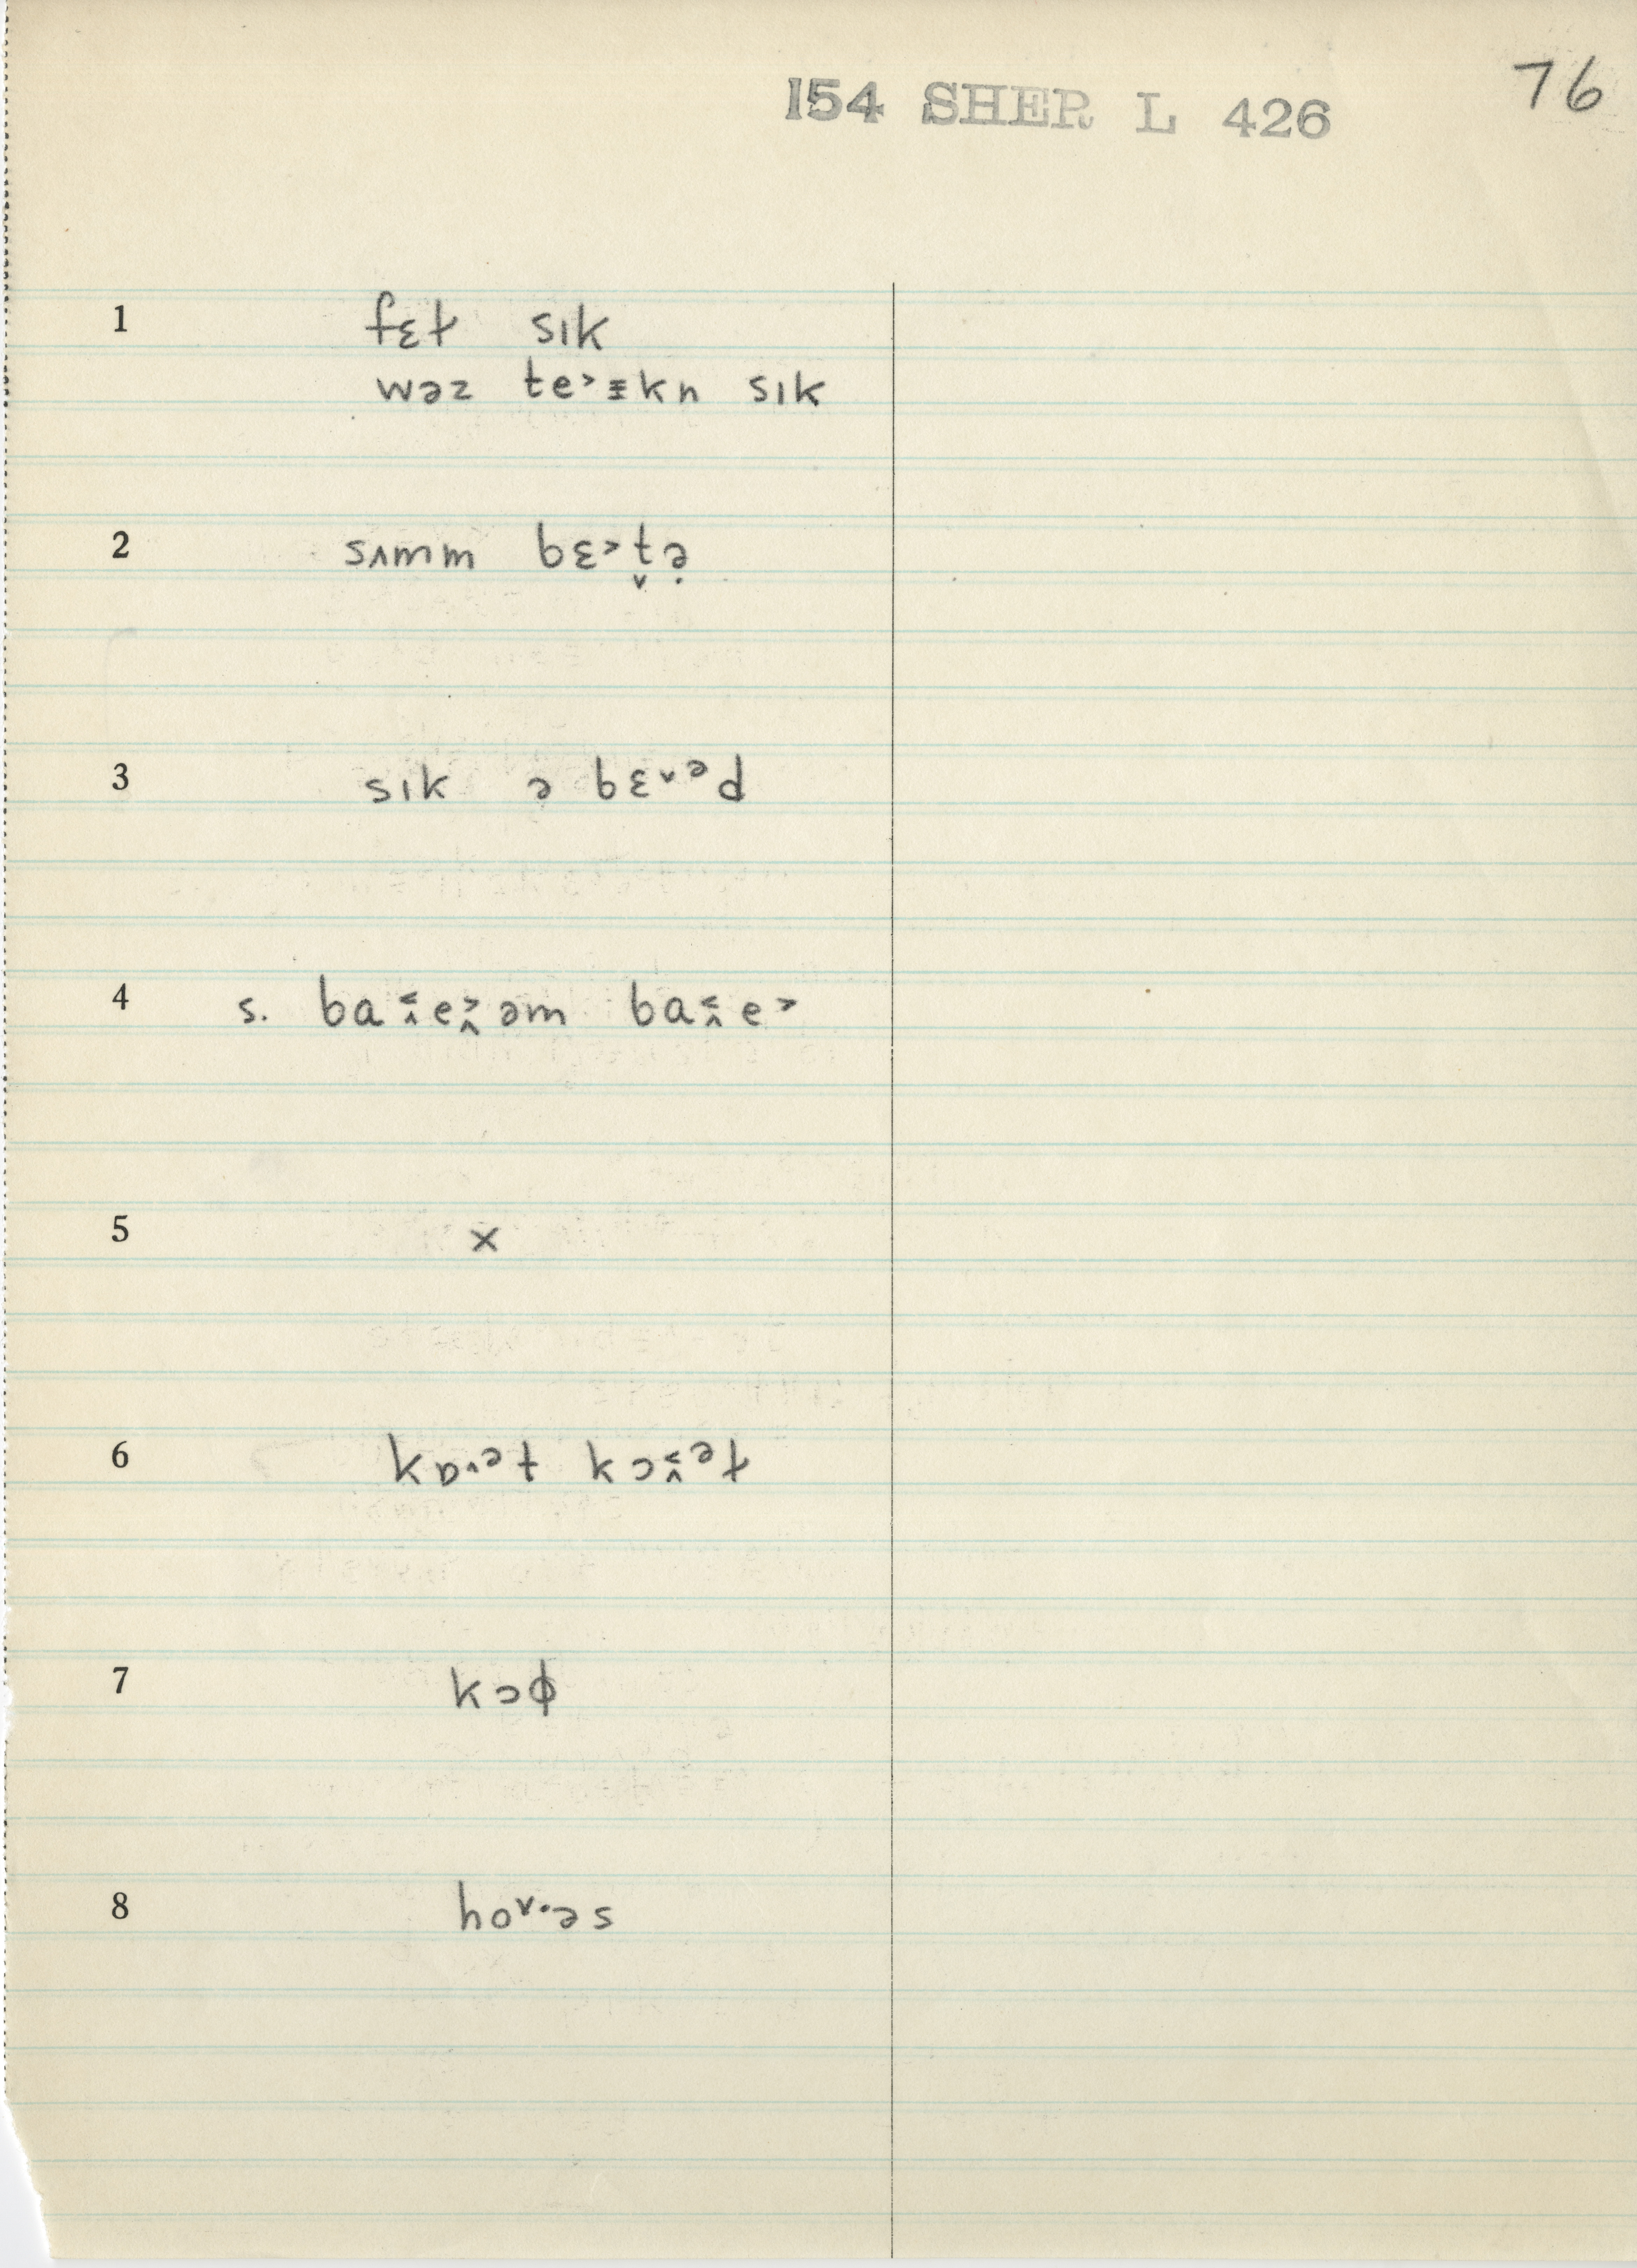 154 SHER L 426
76
1 fɛt sɪk
wəz te˃ɪkn sɪk
2 sʌmm bɛ˃t̬ə̣
3 sɪk ə bɛ˅ᵊd
4 s. ba˂̭e˃̭əm ba˂̭e˃
5 x
6 kɒ˄ᵊt kɔ˂̭ᵊt
7 kɔɸ
8 ho˅·əs